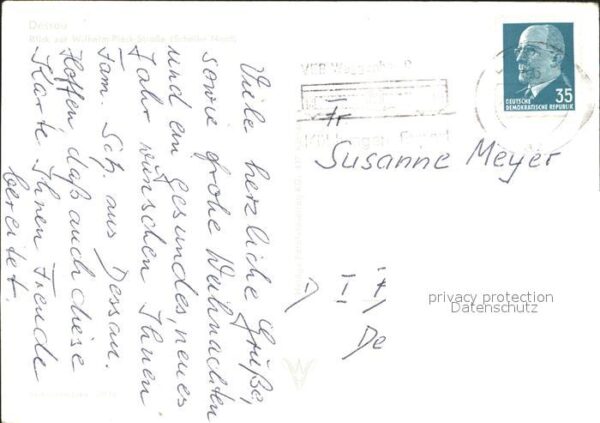 Dessau
Blick zur Wilhelm-Pieck-Straße (Scheibe Nord)
Viele herzliche Grüße,
sowie frohe Weihnachten
und ein gesundes, neues
Jahr wünschen Ihnen
Fam. Sch. aus Dessau.
Hoffen, daß auch diese
Karte Ihnen Freude
bereitet.
35
DEUTSCHE
DEMOKRATISCHE REPUBLIK
VEB
Fr
Susanne Meyer
De
privacy protection
Datenschutz